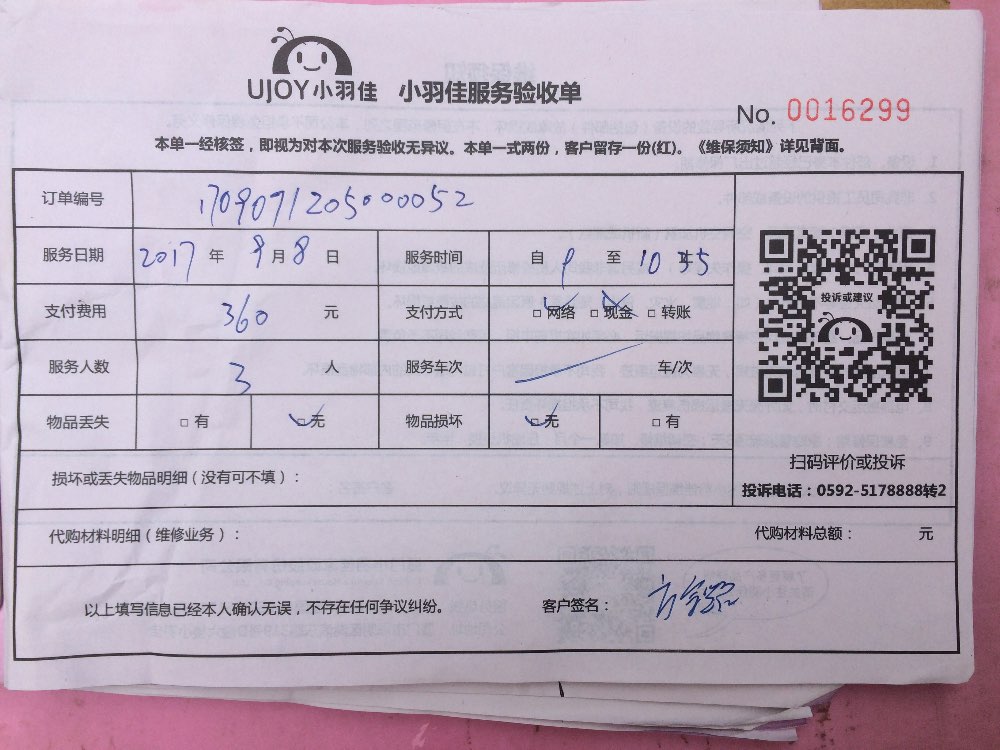 UJOY小羽佳 小羽佳服务验收单
No. 0016299
本单一经核签，即视为对本次服务验收无异议。本单一式两份，客户留存一份(红)。《维保须知》详见背面。
订单编号 1709071205000052
服务日期 2017 年 9 月 8 日 服务时间 自 9 至 10
支付费用 360 元 支付方式 □网络 □现金 □转账
服务人数 3 服务车次 车/次
物品丢失 □有 □无 物品损坏 □无 □有
投诉或建议
扫码评价或投诉
投诉电话：0592-5178888转2
损坏或丢失物品明细（没有可不填）：
代购材料明细（维修业务）： 代购材料总额： 元
以上填写信息已经本人确认无误，不存在任何争议纠纷。 客户签名：